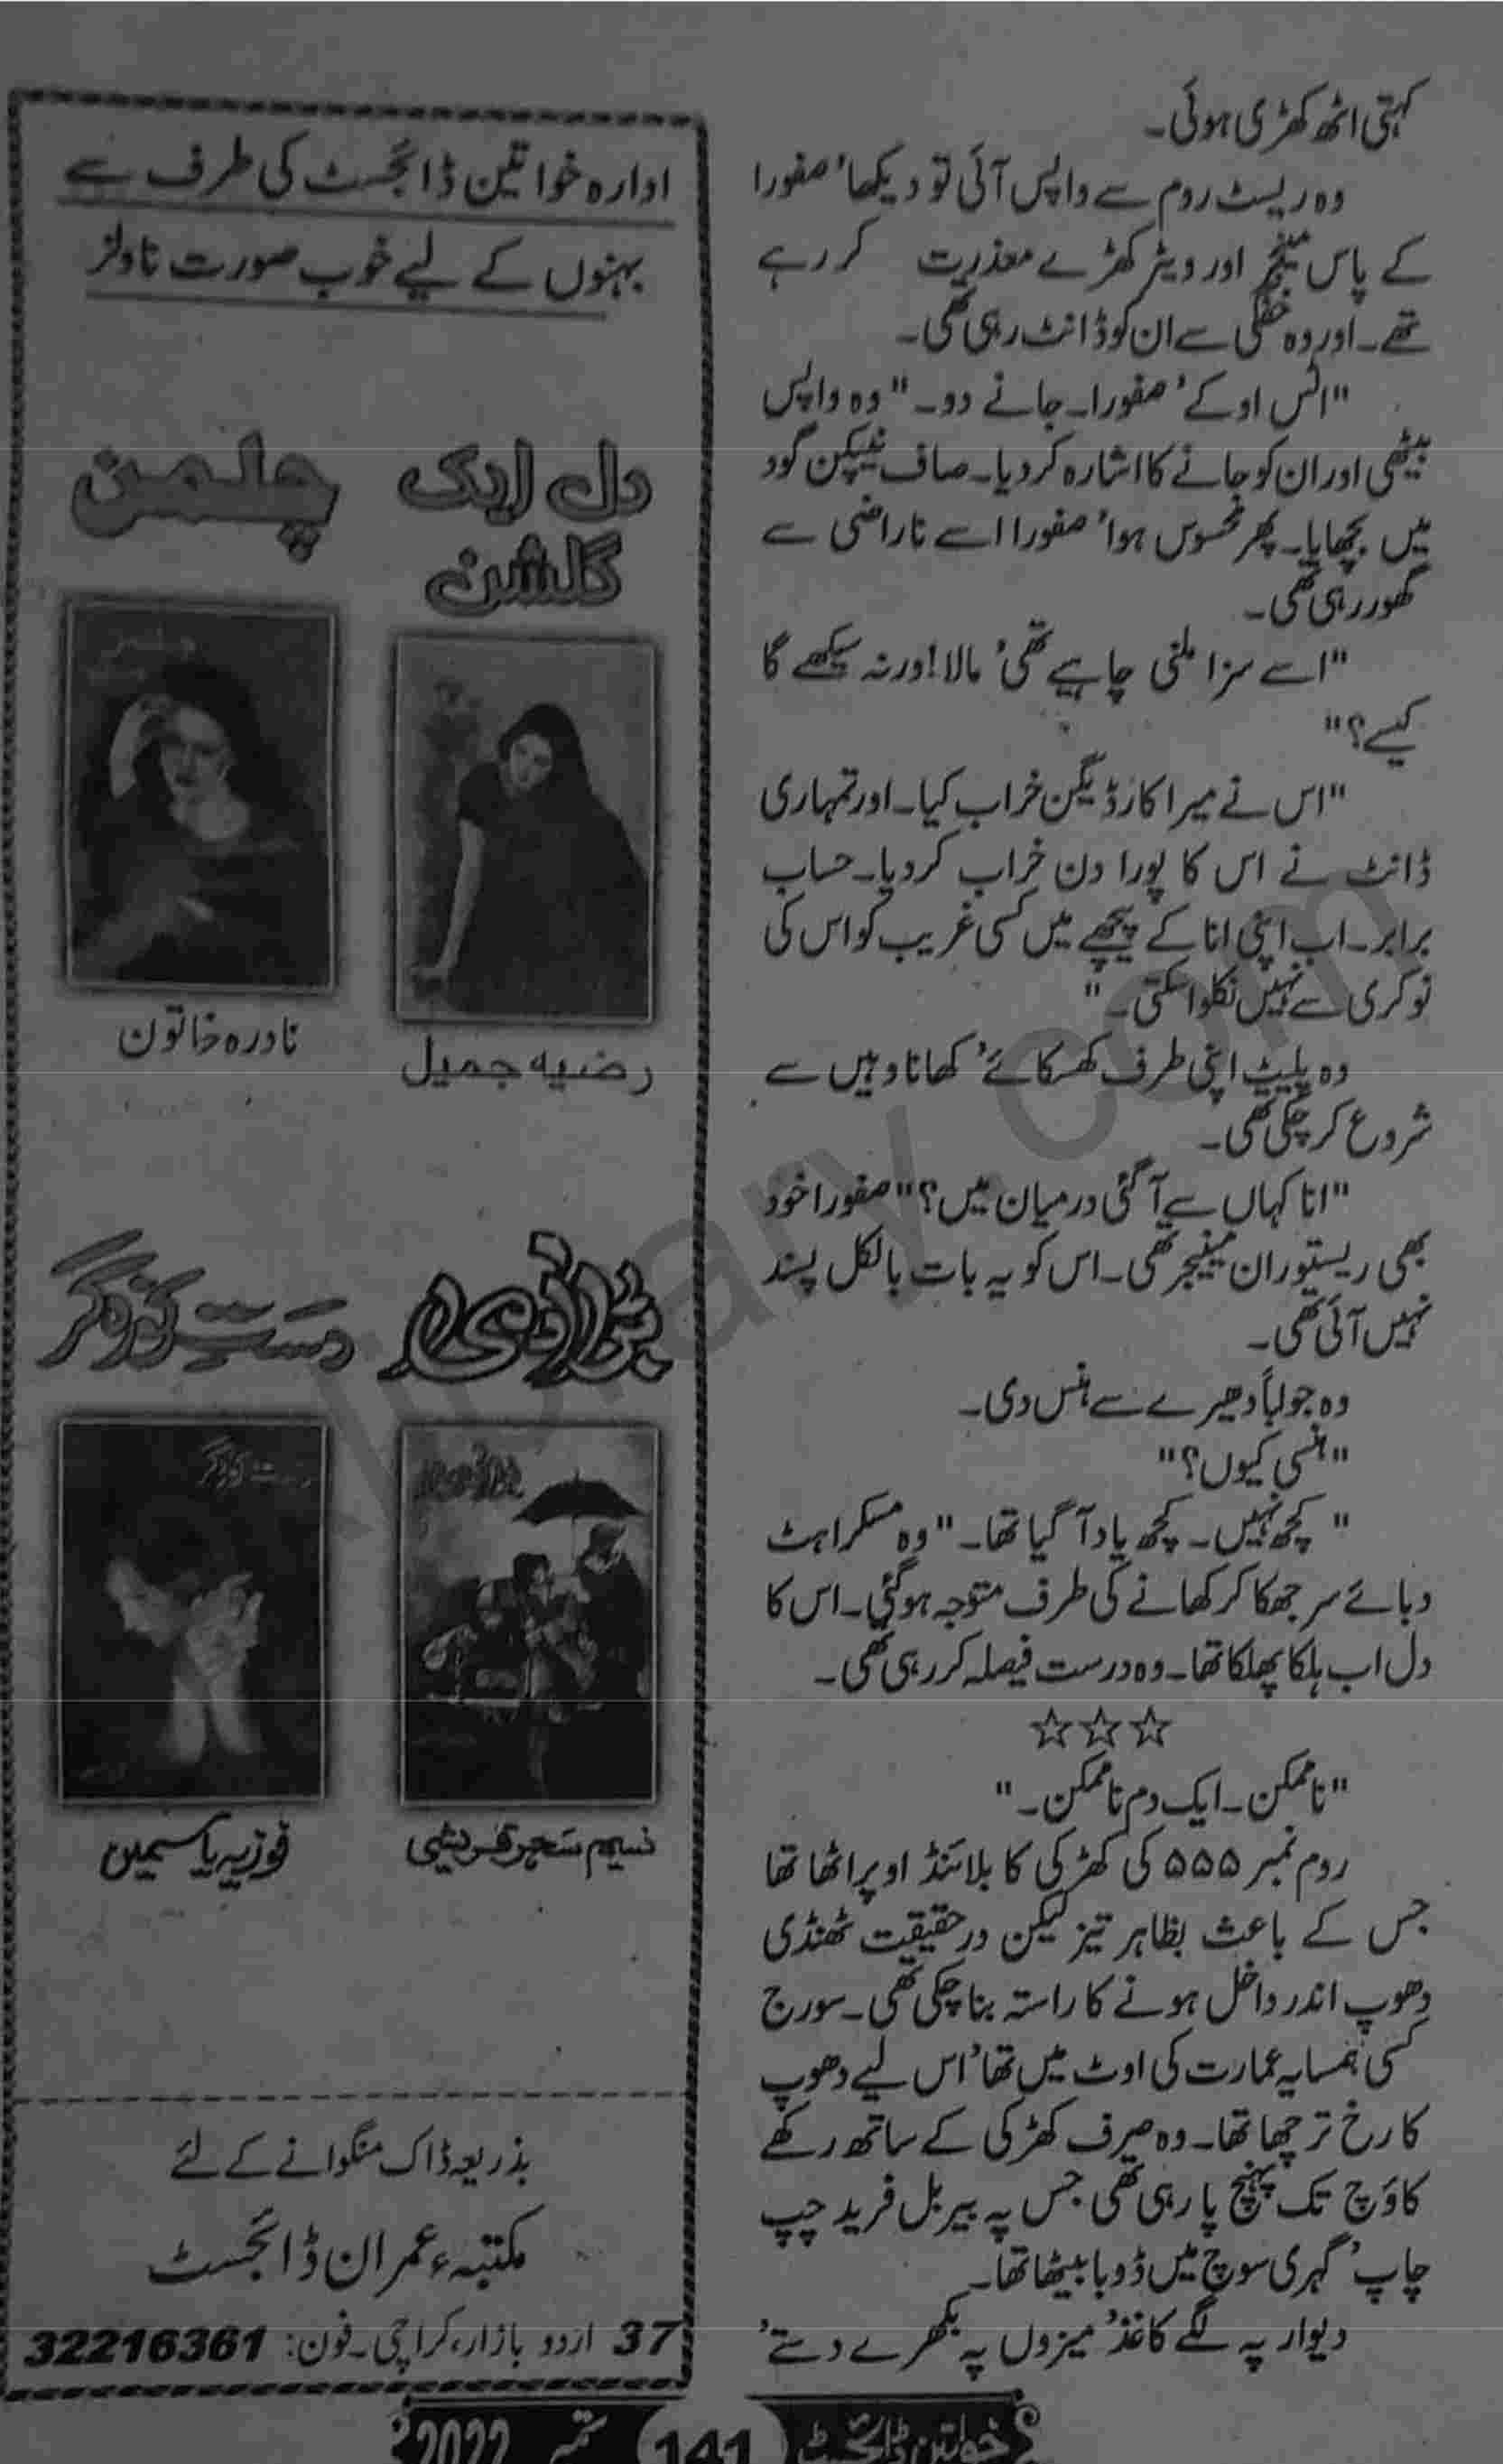 کہتی اٹھ کھڑی ہوئی۔
وہ ریسٹ روم سے واپس آئی تو دیکھا' صفورا
کے پاس مینجر اور ویٹر کھڑے معذرت کر رہے
تھے۔ اور وہ خفگی سے ان کو ڈانٹ رہی تھی۔
"اٹس اوکے' صفورا۔ جانے دو۔" وہ واپس
بیٹھی اور ان کو جانے کا اشارہ کر دیا۔ صاف نیپکن گود
میں بچھایا۔ پھر محسوس ہوا' صفورا اسے ناراضی سے
گھور رہی تھی۔
"اسے سزا ملنی چاہیے تھی' مالا! ورنہ سیکھے گا
کیسے؟"
"اس نے میرا کارڈیگن خراب کیا۔ اور تمہاری
ڈانٹ نے اس کا پورا دن خراب کر دیا۔ حساب
برابر۔ اب اپنی انا کے پیچھے میں کسی غریب کو اس کی
نوکری سے نہیں نکلوا سکتی۔"
وہ پلیٹ اپنی طرف کھسکائے' کھانا وہیں سے
شروع کر چکی تھی۔
"انا کہاں سے آ گئی درمیان میں؟" صفورا خود
بھی ریستوران مینیجر تھی۔ اس کو یہ بات بالکل پسند
نہیں آئی تھی۔
وہ جواباً دھیرے سے ہنس دی۔
"ہنسی کیوں؟"
"کچھ نہیں۔ کچھ یاد آ گیا تھا۔" وہ مسکراہٹ
دبائے سر جھکا کر کھانے کی طرف متوجہ ہو گئی۔ اس کا
دل اب ہلکا پھلکا تھا۔ وہ درست فیصلہ کر رہی تھی۔
☆☆☆
"ناممکن۔ ایک دم ناممکن۔"
روم نمبر ۵۵۵ کی کھڑکی کا بلائنڈ اوپر اٹھا تھا
جس کے باعث بظاہر تیز لیکن درحقیقت ٹھنڈی
دھوپ اندر داخل ہونے کا راستہ بنا چکی تھی۔ سورج
کسی ہمسایہ عمارت کی اوٹ میں تھا' اس لیے دھوپ
کا رخ ترچھا تھا۔ وہ صرف کھڑکی کے ساتھ رکھے
کاؤچ تک پہنچ پا رہی تھی جس پہ بیربل فرید چپ
چاپ' گہری سوچ میں ڈوبا بیٹھا تھا۔
دیوار پہ لگے کاغذ' میزوں پہ بکھرے دستے'
ادارہ خواتین ڈائجسٹ کی طرف سے
بہنوں کے لیے خوب صورت ناولز
دل ایک گلشن
چلمن
رضیہ جمیل
نادرہ خاتون
بڑا آدمی
دستِ کوزہ گر
نسیم سحر قریشی
فوزیہ یاسمین
بذریعہ ڈاک منگوانے کے لئے
مکتبہء عمران ڈائجسٹ
37 اردو بازار، کراچی۔ فون: 32216361
خواتین ڈائجسٹ 141 ستمبر 2022ء